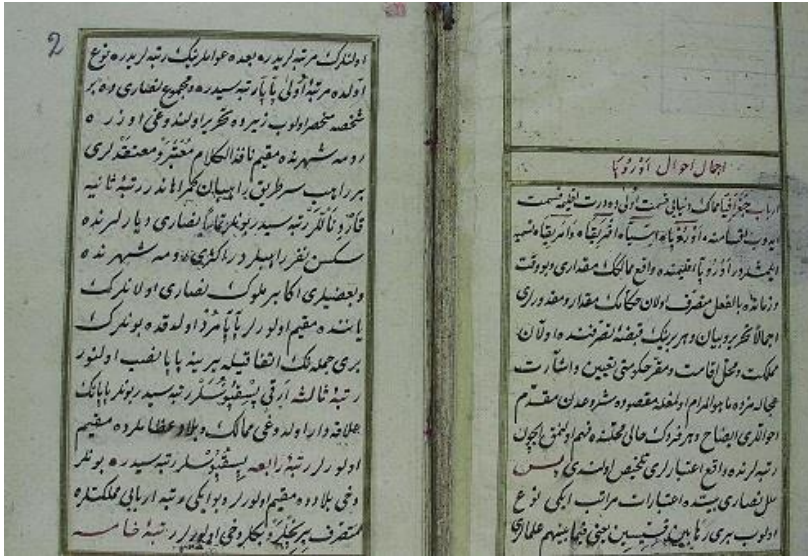 اجمال احوال اوروپا
ارباب جغرافیا ممالک دنیایی قسمت اولی ده درت اقلیمه قسمت
ایدوب اقسامنه اوروپا و آسیا و افریقا و امریقا تسمیه
ایتمشلردر اوروپا اقلیمنده واقع ممالک مقداری و بو وقت
و زمانده بالفعل متصرف اولان حکامک مقدار و مقدورلری
اجمالا تحریر و بیان و هر برینک قبضهٔ تصرفنده اولان
مملکت و محل اقامت و مقر حکومتی تعیین و اشارت
عجاله مزده ما هو المرام اولمغله مقصوده شروعدن مقدم
احواللری ایضاح و هر حالی محلنده فهم اولنمق ایچون
رتبه لرنده واقع اعتبارلری تلخیص اولندی پس
ملل نصاری بیننده اعتبارات مراتب ایکی نوع
اولوب بری رهابین و قسیسین یعنی فیما بینهم علمالری
2
اولنلرک مرتبه لریدر و بعده عوام لرینک رتبه لریدر نوع
اولده مرتبهٔ اولی پاپا رتبه سیدر و مجموع نصاری ده بر
شخصه منحصر اولوب زیرده تحریر اولندوغی اوزره
رومه شهرنده مقیم نافذ الکلام معتبر و معتقدلری
بر راهب سر طریق راهبان کمراهاندر رتبهٔ ثانیه
قاردنالر رتبه سیدر بونلر نصاری دیارلرنده
سکسن نفر راهبلردر اکثری رومه شهرنده
و بعضیلری اکابر ملوک نصاری اولانلرک
یاننده مقیم اولورلر پاپا مرد اولدقده بونلرک
بری جمله نک اتفاقیله یرینه پاپا نصب اولنور
رتبهٔ ثالثه ارقی پسقپوسلر رتبه سیدر بونلر پاپانک
علاقه دار اولدوغی ممالک و بلاد عظامده مقیم
اولورلر رتبهٔ رابعه پسقپوسلر رتبه سیدر بونلر
دخی بلادده مقیم اولورلر و بو ایکی رتبه اربابی مملکتلره
متصرف دخی اولورلر رتبهٔ خامسه